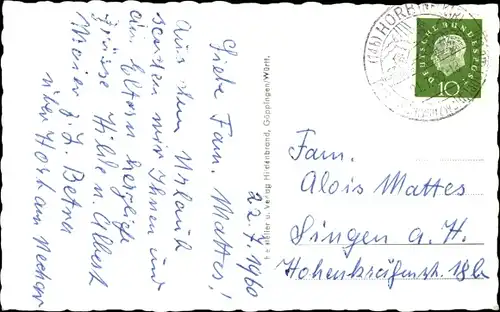 22.7.1960
Liebe Fam. Mattes!
Aus dem Urlaub
senden wir Ihnen und
den Eltern herzliche
Grüsse Hilde u. Albert
Maier z. Zt. Betra
über Horb am Neckar
Hersteller u. Verlag Hirdenbrand, Göppingen/Württ.
HORB
DEUTSCHE BUNDESPOST
10
Fam.
Alois Mattes
Singen a. H.
Hohenkräjenstr. 18b